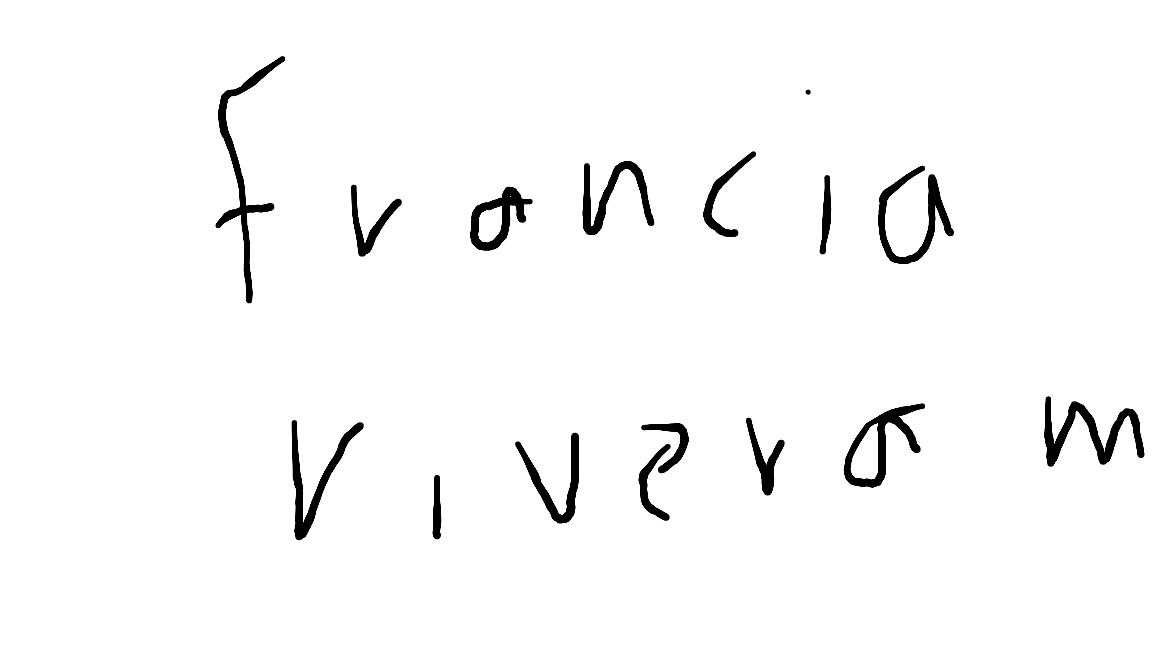 francia
rivera m